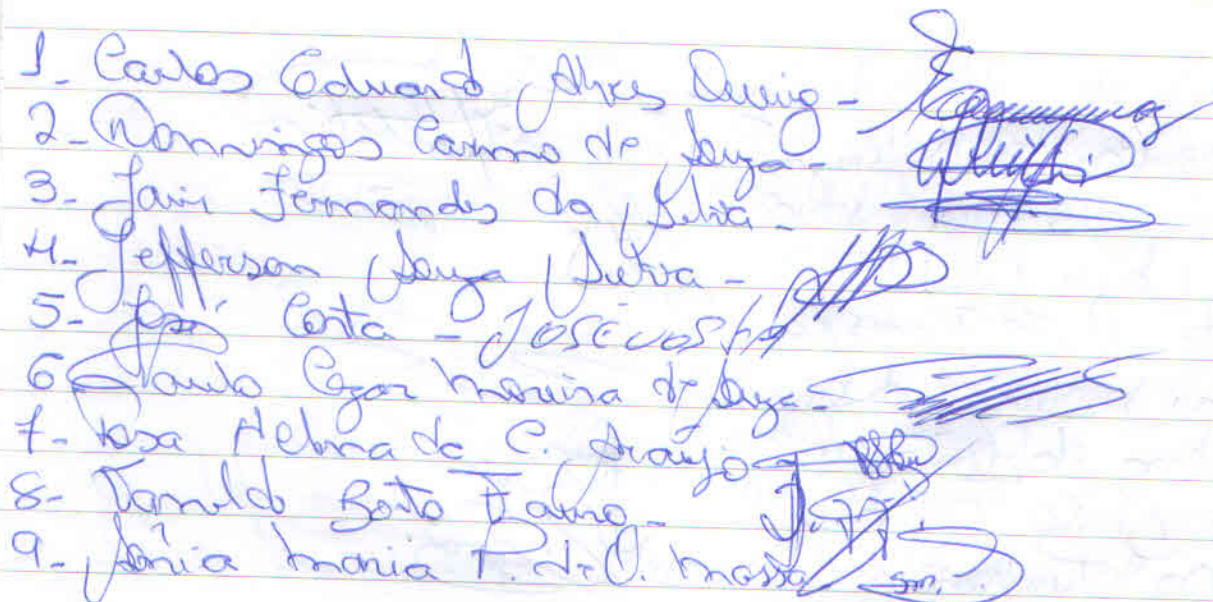 1- Carlos Eduardo Alves Queiroz -
2- Domingos Carmo de Souza -
3- Jair Fernandes da Silva -
4- Jefferson Souza Silva -
5- José Costa - JOSÉ COSTA
6 Paulo Cezar Moreira de Souza -
7- Rosa Helena de C. Araujo
8- Vanildo Bosto
9- Sônia Maria P. de O. Massa